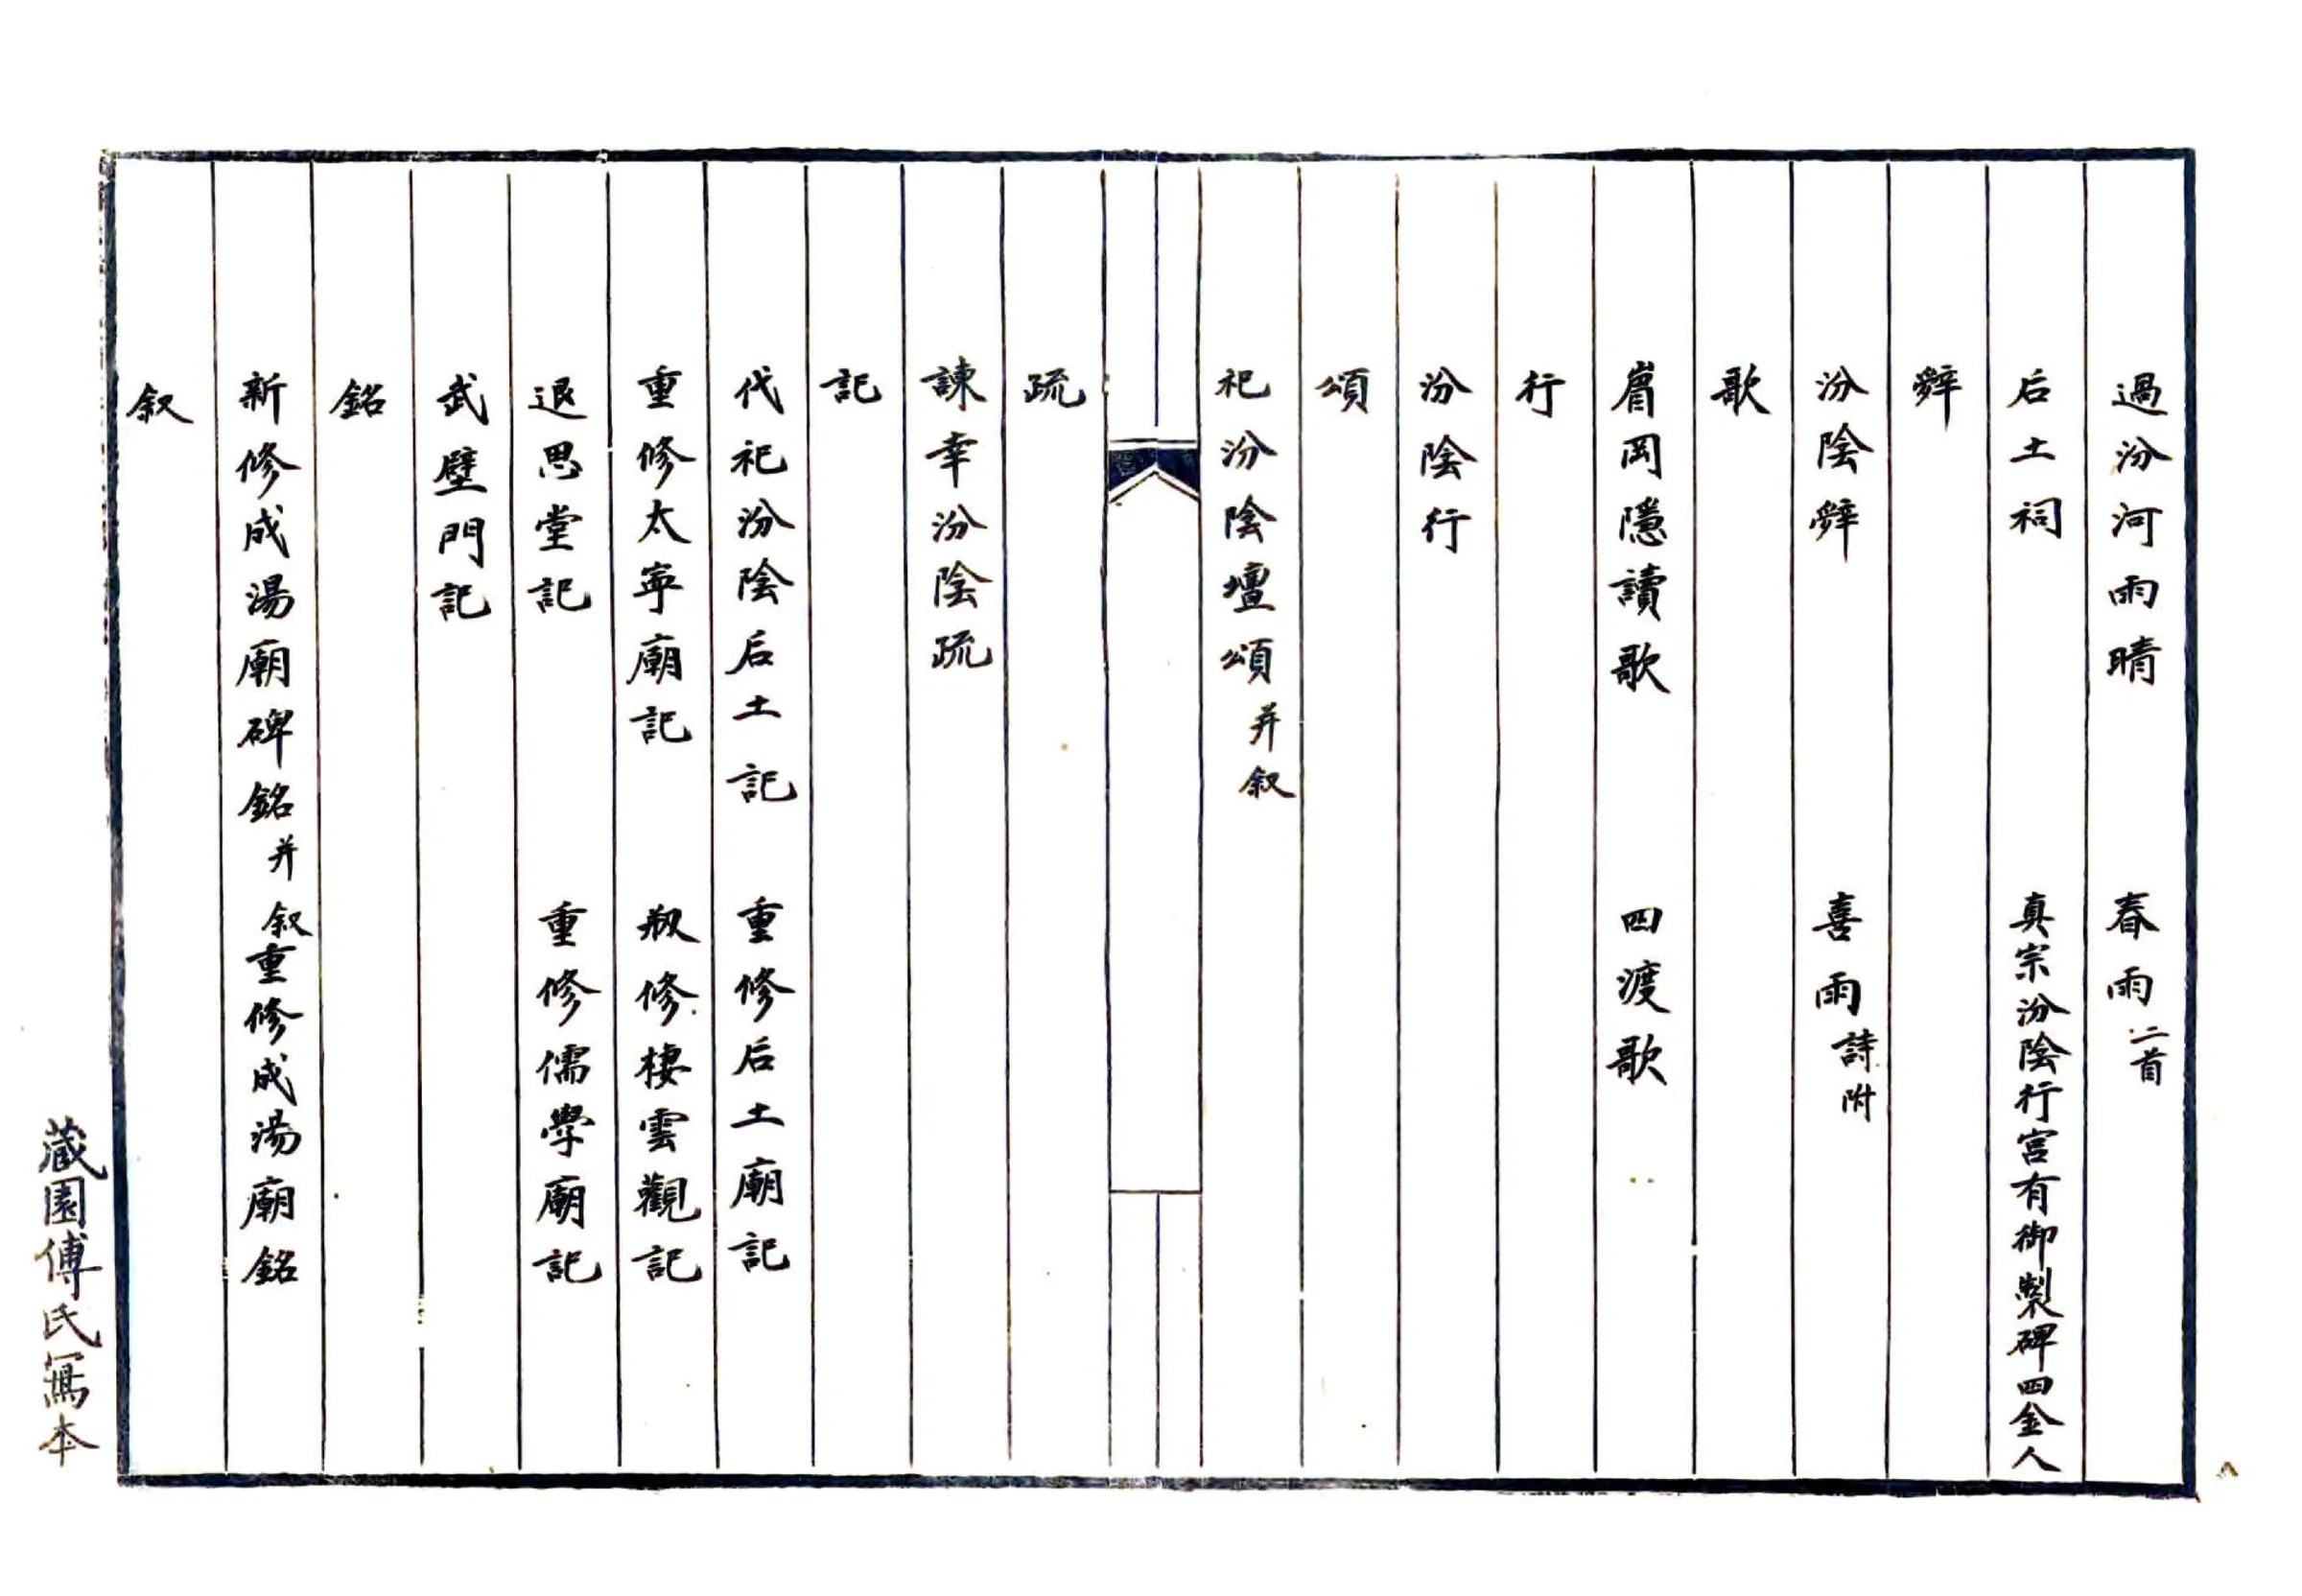 過汾河雨晴 春雨二首
后土祠 真宗汾陰行宮有御製碑四金人
辤
汾陰辤 喜雨詩附
歌
睂岡隱讀歌 四渡歌
行
汾陰行
頌
祀汾陰壇頌并叙
疏
諫幸汾陰疏
記
代祀汾陰后土記 重修后土廟記
重修太寧廟記 剏修棲雲觀記
退思堂記 重修儒學廟記
武壁門記
銘
新修成湯廟碑銘并叙重修成湯廟銘
叙
藏園傅氏寫本